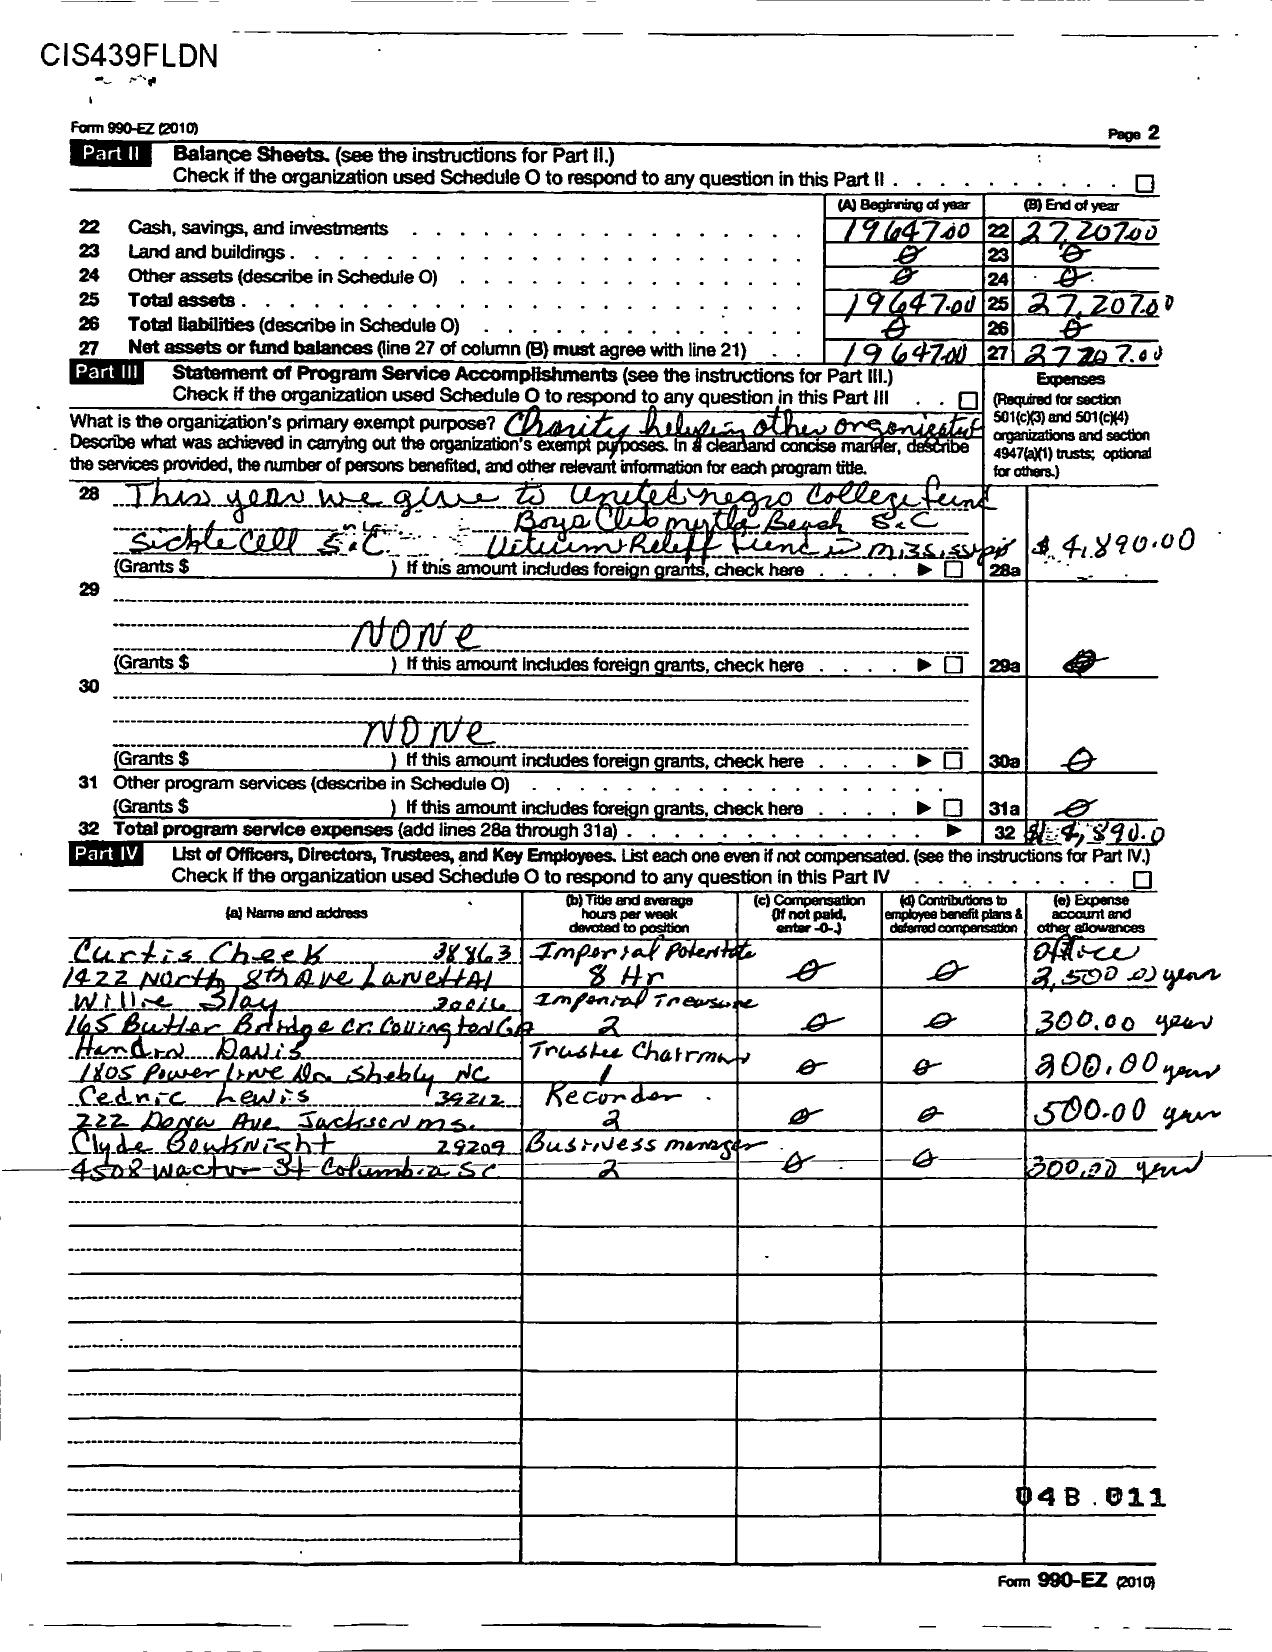 CIS439FLDN
Form 990-EZ (2010) Page 2
Part II Balance Sheets. (see the instructions for Part II.)
Check if the organization used Schedule O to respond to any question in this Part II . . . . . . . . . . ☐
(A) Beginning of year (B) End of year
22 Cash, savings, and investments 19647.00 22 27,207.00
23 Land and buildings 0 23 0
24 Other assets (describe in Schedule O) 0 24 0
25 Total assets 19647.00 25 27,207.00
26 Total liabilities (describe in Schedule O) 0 26 0
27 Net assets or fund balances (line 27 of column (B) must agree with line 21) 19647.00 27 27207.00
Part III Statement of Program Service Accomplishments (see the instructions for Part III.)
Check if the organization used Schedule O to respond to any question in this Part III . . ☐
Expenses
(Required for section
501(c)(3) and 501(c)(4)
organizations and section
4947(a)(1) trusts; optional
for others.)
What is the organization's primary exempt purpose? Charity helping other
Describe what was achieved in carrying out the organization's exempt purposes. In a clear and concise manner, describe
the services provided, the number of persons benefited, and other relevant information for each program title.
28 This year we give to United negro College Fund
Boys Club myrtla Beach S.C
Sickle Cell S.C Releff Fund in $ 4,890.00
(Grants $ ) If this amount includes foreign grants, check here . . . . ▶ ☐ 28a
29
NONe
(Grants $ ) If this amount includes foreign grants, check here . . . . ▶ ☐ 29a 0
30
NONe
(Grants $ ) If this amount includes foreign grants, check here . . . . ▶ ☐ 30a 0
31 Other program services (describe in Schedule O)
(Grants $ ) If this amount includes foreign grants, check here . . . . ▶ ☐ 31a 0
32 Total program service expenses (add lines 28a through 31a) ▶ 32 4,890.0
Part IV List of Officers, Directors, Trustees, and Key Employees. List each one even if not compensated. (see the instructions for Part IV.)
Check if the organization used Schedule O to respond to any question in this Part IV . . . . . . . . . ☐
(a) Name and address
(b) Title and average
hours per week
devoted to position
(c) Compensation
(If not paid,
enter -0-.)
(d) Contributions to
employee benefit plans &
deferred compensation
(e) Expense
account and
other allowances
Curtis Cheek 38863 Imperial Potentate office
1422 North 8th Ave Lanett Al 8 Hr 0 0 2,500.00 year
Willie Slay Imperial Treasure
165 Butler Bridge Cr. Covington GA 2 0 0 300.00 year
Davis Trustee Chairman
1805 Power Line Dr. Shebly NC 1 0 0 200.00 year
Cedric Lewis 39212 Recorder
222 Dona Ave Jackson ms. 2 0 0 500.00 year
Clyde Bouknight 29209 Business manager
4508 St Columbia SC 2 0 0 300.00 year
04B.011
Form 990-EZ (2010)